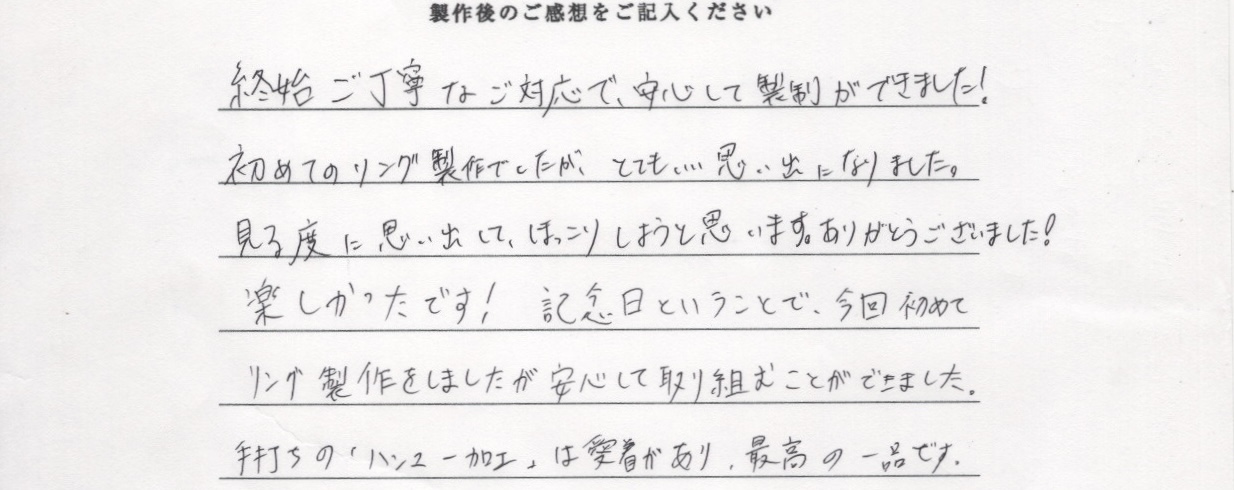 製作後のご感想をご記入ください
終始ご丁寧なご対応で、安心して製制ができました!
初めてのリング製作でしたが、とてもいい思い出になりました。
見る度に思い出して、ほっこりしようと思います。ありがとうございました!
楽しかったです! 記念日ということで、今回初めて
リング製作をしましたが安心して取り組むことができました。
手打ちの「ハンマー加工」は愛着があり、最高の一品です。